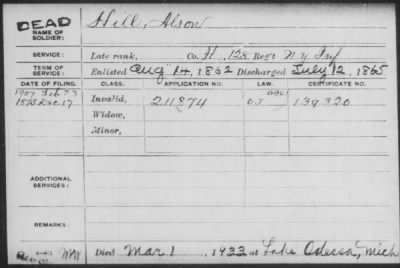 DEAD
NAME OF SOLDIER: Hill, Alson
SERVICE: Late rank, Co. H, 128 Reg't N.Y. Inf
TERM OF SERVICE: Enlisted Aug 14, 1862 Discharged July 12, 1865
DATE OF FILING. CLASS. APPLICATION NO. LAW. CERTIFICATE NO.
1907 Feb 23
1875 Dec. 17 Invalid, 211874 139320
Widow,
Minor,
ADDITIONAL SERVICES:
REMARKS:
Died Mar 1, 1933 at Lake Odessa, Mich